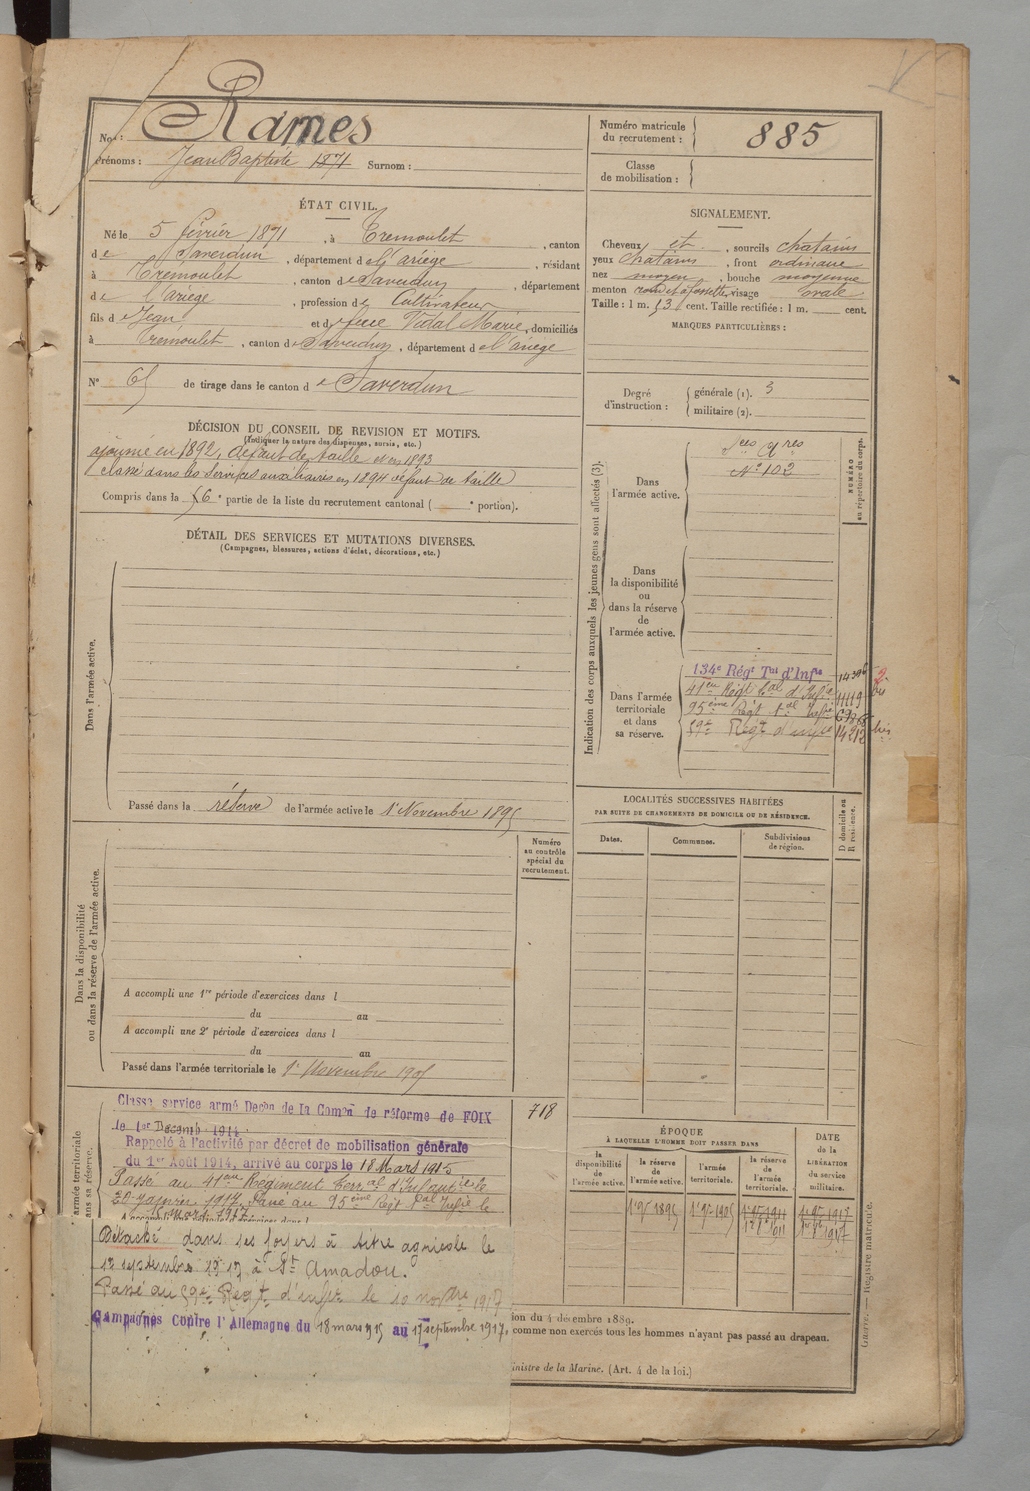 Nom : Rames
Prénoms : Jean Baptiste 1871 Surnom :
Numéro matricule
du recrutement : 885
Classe
de mobilisation :
ÉTAT CIVIL.
Né le 5 février 1871, à Tremoulet, canton
de Saverdun, département de l'ariège, résidant
à Trémoulet, canton de Saverdun, département
de l'ariège, profession de Cultivateur
fils de Jean et de feue Vidal Marie, domiciliés
à Trémoulet, canton de Saverdun, département de l'ariège
N° 65 de tirage dans le canton de Saverdun
SIGNALEMENT.
Cheveux et, sourcils chatains
yeux chatains, front ordinaire
nez moyen, bouche moyenne
menton rond et à fossette, visage ovale
Taille : 1 m. 53 cent. Taille rectifiée : 1 m. cent.
MARQUES PARTICULIÈRES :
Degré
d'instruction :
générale (1). 3
militaire (2).
DÉCISION DU CONSEIL DE REVISION ET MOTIFS.
(Indiquer la nature des dispenses, sursis, etc.)
ajourné en 1892, défaut de taille et en 1893
classé dans les services auxiliaires en 1894 défaut de taille
Compris dans la 6e partie de la liste du recrutement cantonal ( e portion).
DÉTAIL DES SERVICES ET MUTATIONS DIVERSES.
(Campagnes, blessures, actions d'éclat, décorations, etc.)
Dans l'armée active.
Passé dans la réserve de l'armée active le 1r Novembre 1895
Indication des corps auxquels les jeunes gens sont affectés (3).
NUMÉRO
au répertoire du corps.
Dans
l'armée active.
Sces Qres
N° 102
Dans
la disponibilité
ou
dans la réserve
de
l'armée active.
Dans l'armée
territoriale
et dans
sa réserve.
134e Régt Tal d'Infie
41eme Régt Tal d'Infie 11119
95ème Régt Tal Infie
59e Régt d'infie 14212 bis
LOCALITÉS SUCCESSIVES HABITÉES
PAR SUITE DE CHANGEMENTS DE DOMICILE OU DE RÉSIDENCE.
Dates.
Communes.
Subdivisions
de région.
D domicile ou
R résidence.
Numéro
au contrôle
spécial du
recrutement.
718
Dans la disponibilité
ou dans la réserve de l'armée active.
A accompli une 1re période d'exercices dans l
du au
A accompli une 2e période d'exercices dans l
du au
Passé dans l'armée territoriale le 1r Novembre 1905
armée territoriale
ans sa réserve.
Classé service armé Decon de la Comon de réforme de FOIX
le 1er Decemb 1914.
Rappelé à l'activité par décret de mobilisation générale
du 1er Août 1914, arrivé au corps le 18 Mars 1915
Passé au 41eme Régiment Terral d'Infantie le
20 janvier 1917. Passé au 95ème Régt Tal Infie le
15 Mars 1917.
Détaché dans ses foyers à titre agricole le
17 septembre 1917 à St Amadou.
Passé au 59e Regt d'infie le 10 novbre 1917
Campagnes Contre l'Allemagne du 18 mars 1915 au 17 septembre 1917.
ÉPOQUE
À LAQUELLE L'HOMME DOIT PASSER DANS
la
disponibilité
de
l'armée active.
la réserve
de
l'armée active.
l'armée
territoriale.
la réserve
de
l'armée
territoriale.
DATE
de la
LIBÉRATION
du service
militaire.
1r 9e 1895
1r 9e 1905
1r 9e 1911
1r 9e 1917
ion du 4 décembre 1889.
comme non exercés tous les hommes n'ayant pas passé au drapeau.
ministre de la Marine. (Art. 4 de la loi.)
Guerre. — Registre matricule.